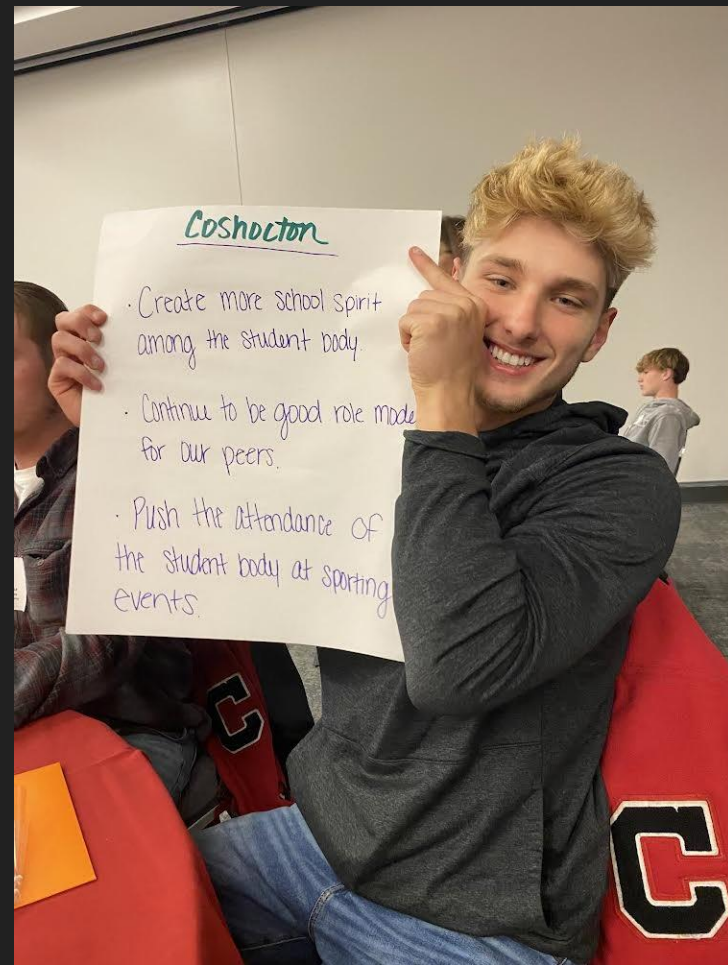 Coshocton
· Create more school spirit
among the student body.
· Continue to be good role mode
for our peers.
· Push the attendance of
the student body at sporting
events.
C
C